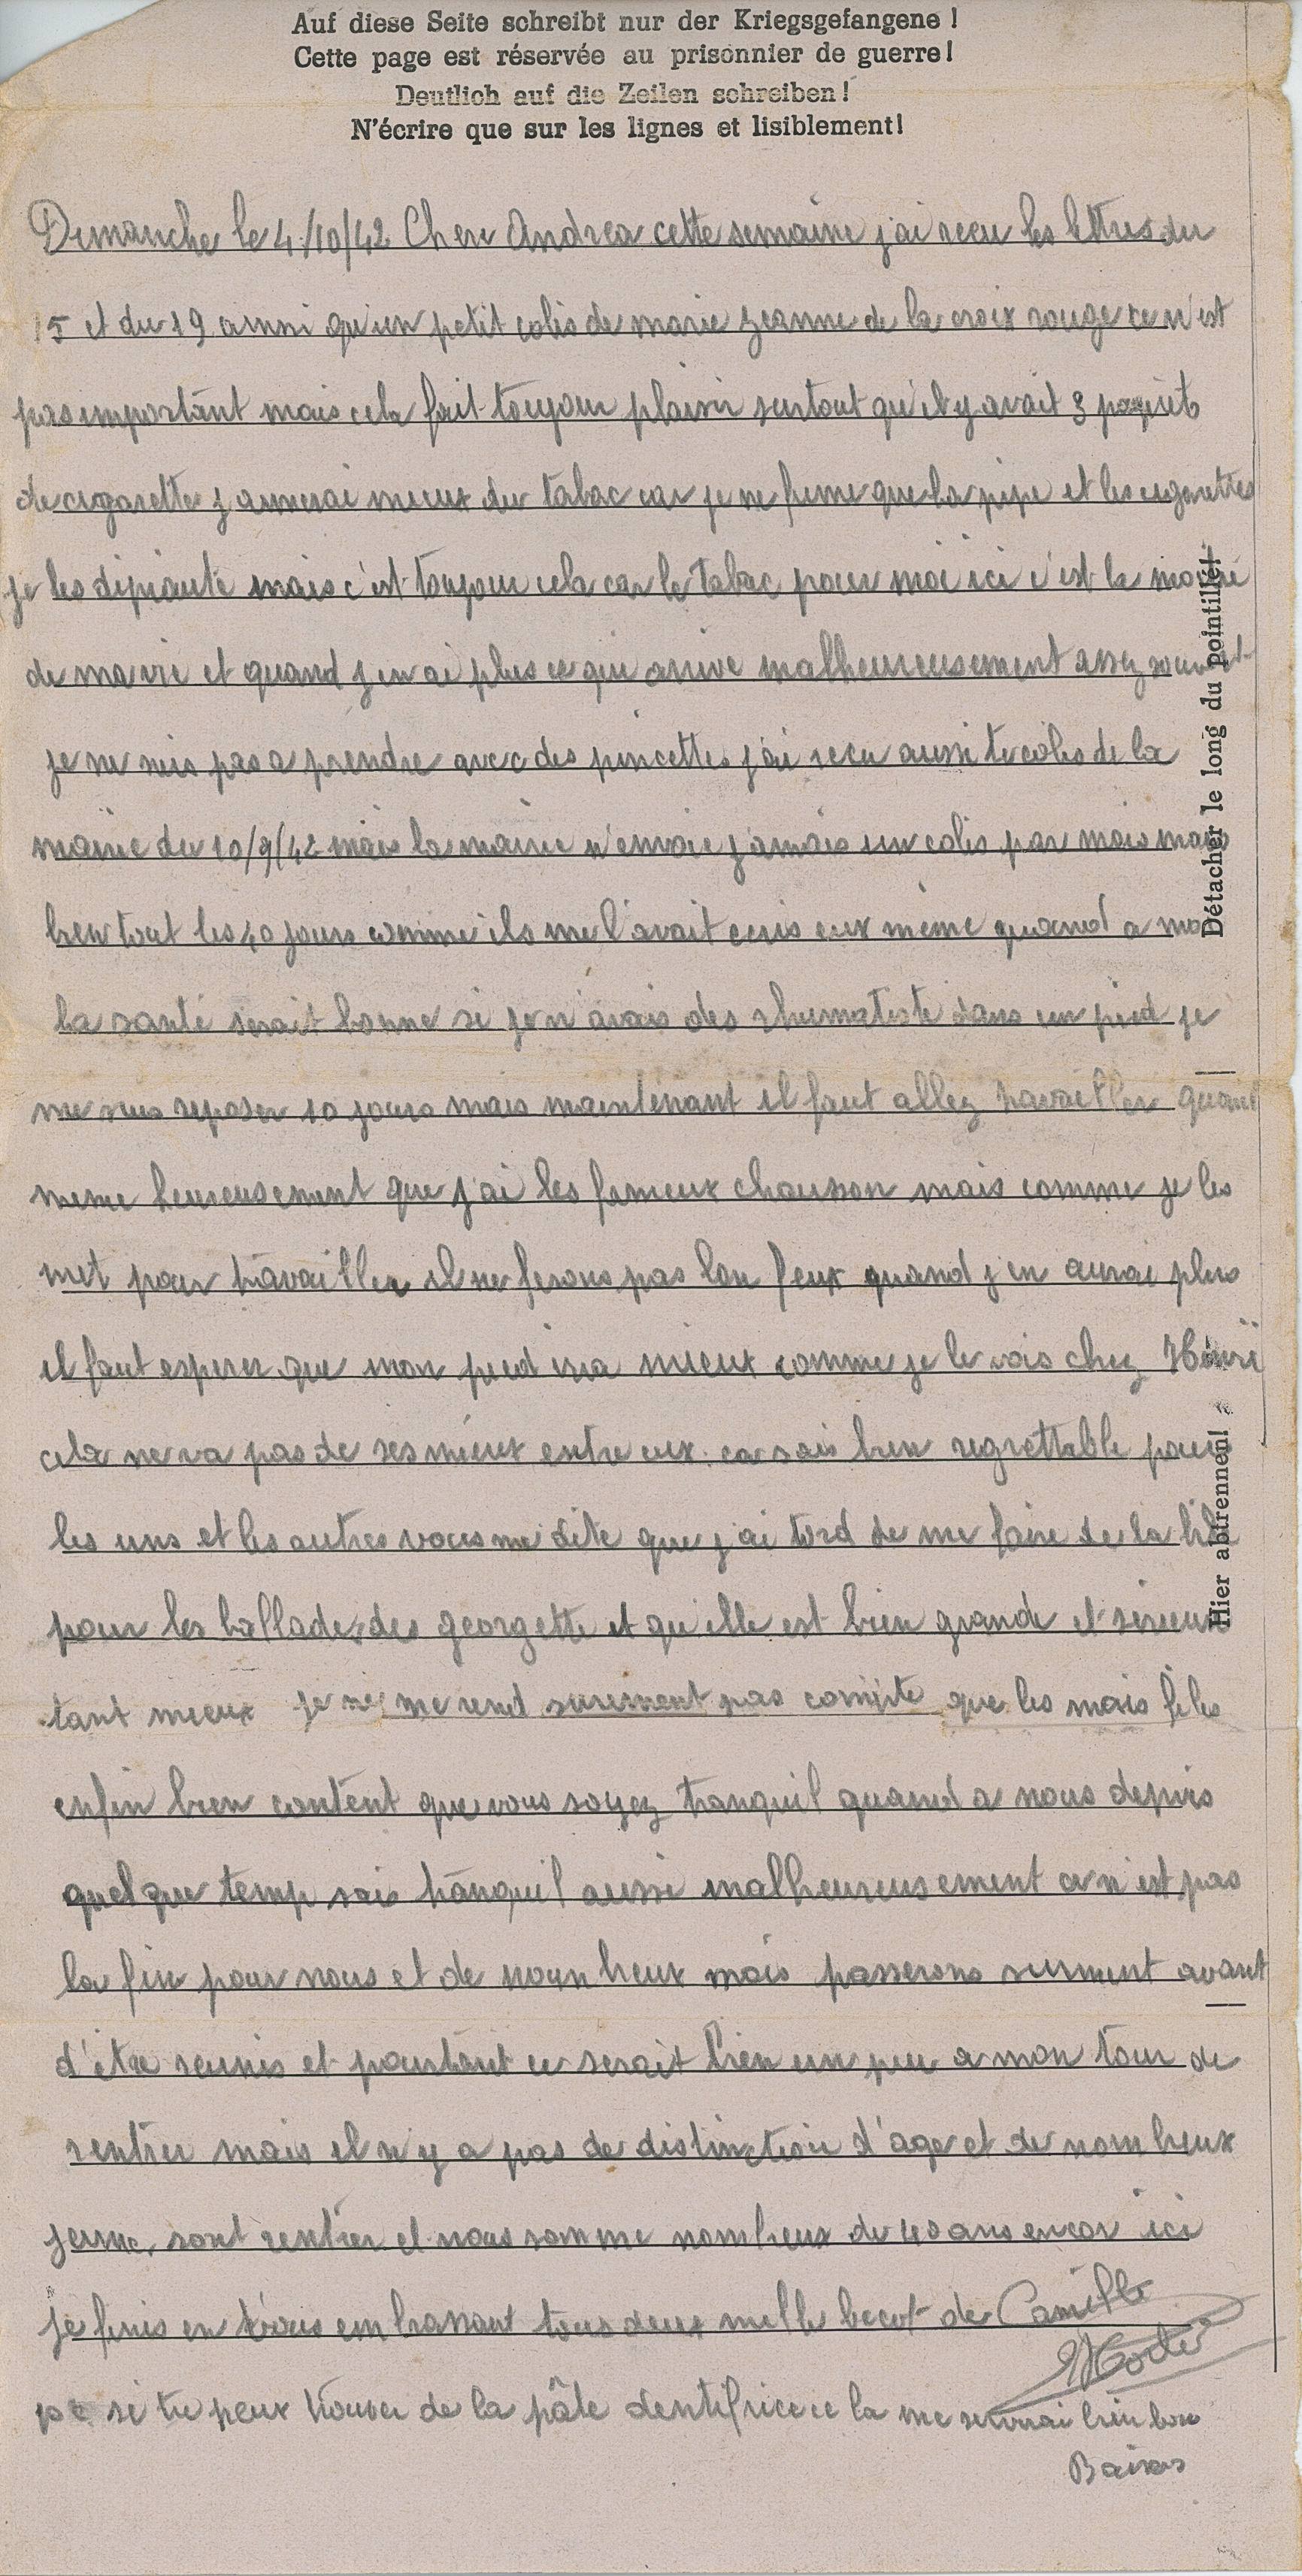 Auf diese Seite schreibt nur der Kriegsgefangene !
Cette page est réservée au prisonnier de guerre !
Deutlich auf die Zeilen schreiben !
N'écrire que sur les lignes et lisiblement !
Dimanche le 4/10/42 Chere Andrea cette semaine j'ai recu les lettres du
15 et du 19 ainsi qu'un petit colis de marie jeanne de la croix rouge ce n'est
pas important mais cela fait toujour plaisir surtout qu'il y avait 3 paquets
de cigarette j'aimerai mieux du tabac car je ne fume que la pipe et les cigarettes
je les dépiaute mais c'est toujour cela car le tabac pour moi ici c'est la moitié
de ma vie et quand j'en ai plus ce qui arrive malheureusement assez souvent
je ne suis pas a prendre avec des pincettes j'ai recu aussi le colis de la
mairie du 10/9/42 mais la mairie n'envoie jamais un colis par mois mais
bien tout les 40 jours comme ils me l'avait ecris eux même quand a ma
la santé serait bonne si je n'avais des dans un pied je
me suis reposer 10 jours mais maintenant il faut allez travailler quand
meme heureusement que j'ai les fameux chausson mais comme je les
met pour travailler il ne ferons pas lon feux quand j'en aurai plus
il faut esperer que mon pied ira mieux comme je le vois chez Henri
cela ne va pas de ses mieux entre eux ca sais bien regrettable pour
les uns et les autres vous me dite que j'ai tord de me faire de la bile
pour les ballades des georgette et qu'elle est bien grande et sérieux
tant mieux je ne me rend surement pas compte que les mois files
enfin bien content que vous soyez tranquil quand a nous depuis
quelque temp sais tranquil aussi malheureusement ce n'est pas
la fin pour nous et de nombreux mois passerons surment avant
d'être reunis et pourtant ce serait bien un peu a mon tour de
rentrer mais il n'y a pas de distinction d'age et de nombreux
jeune sont rentrer et nous somme nombreux de 40 ans encor ici
je finis en vous embrassant tous deux mille becot de Camille
ps si tu peux trouver de la pâte dentifrice ce la me servirai bien bon
Baisers
Détacher le long du pointillé!
Hier abtrennen!